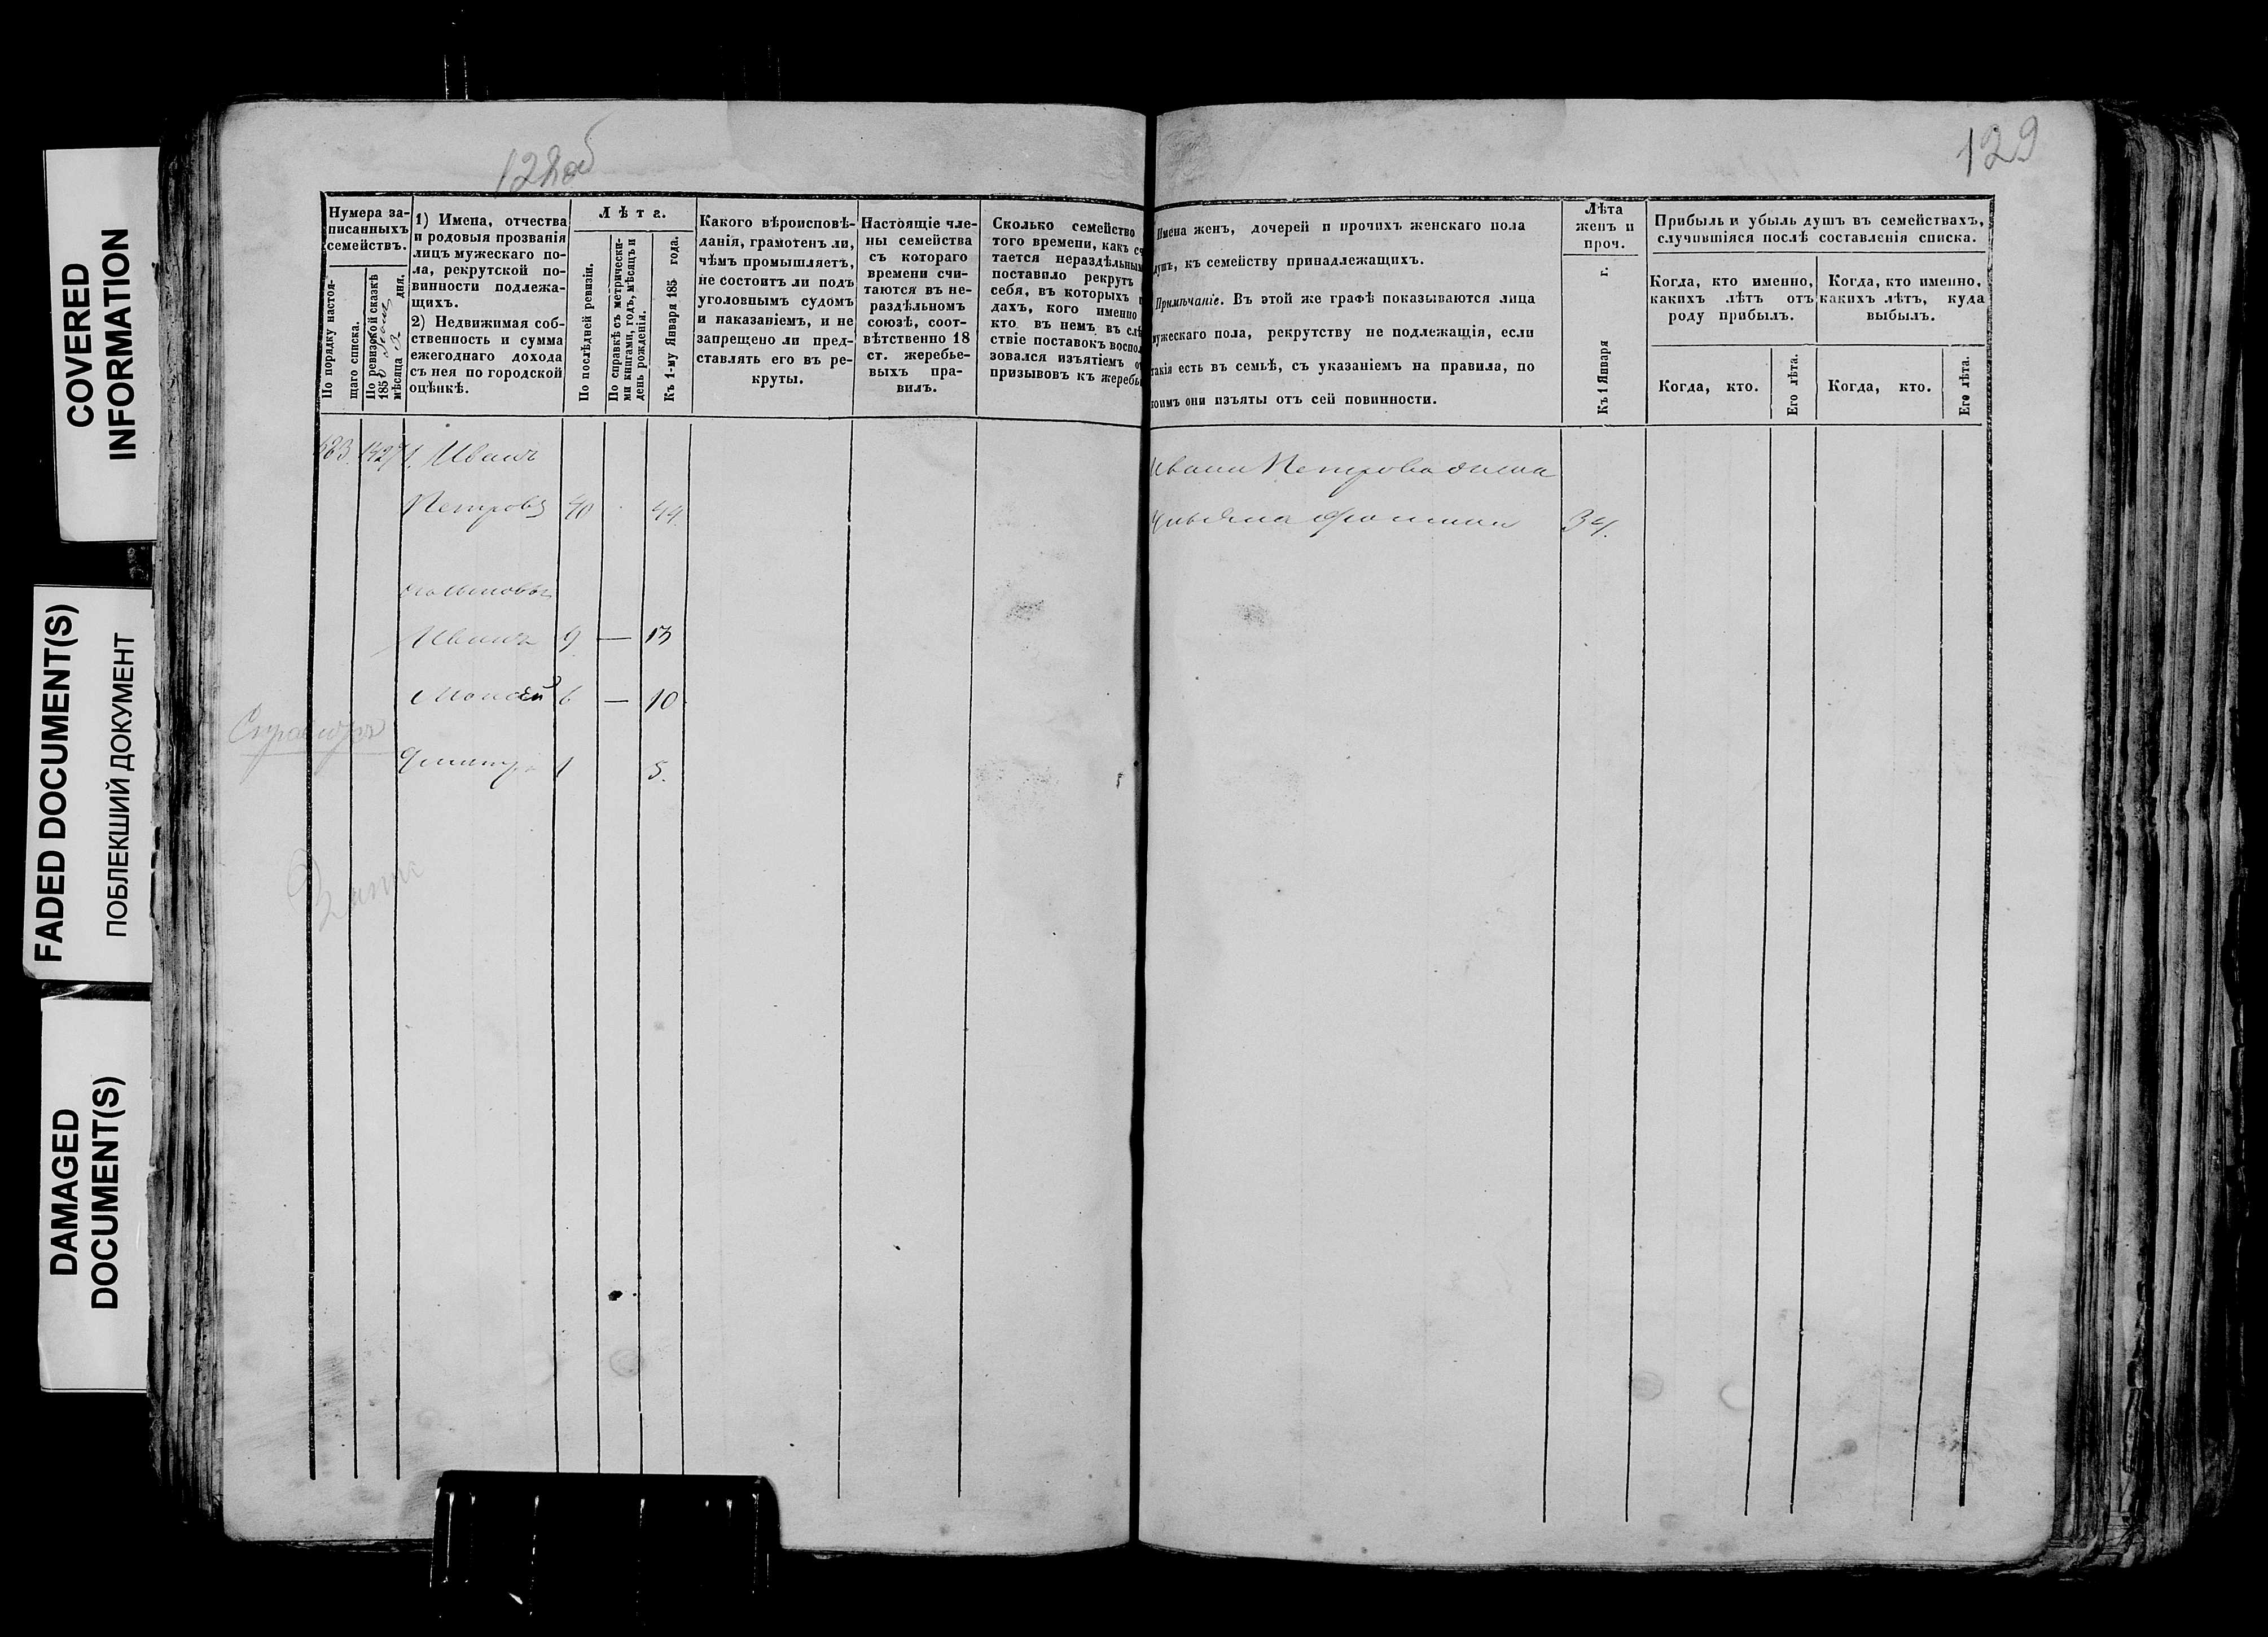 COVERED
INFORMATION
FADED DOCUMENT(S)
ПОБЛЕКШИЙ ДОКУМЕНТ
DAMAGED
DOCUMENT(S)
128об
129
Нумера за-
писанныхъ
семействъ.
По порядку настоя-
щаго списка.
По ревизской сказкѣ
185
мѣсяца дня.
1) Имена, отчества
и родовыя прозванія
лицъ мужескаго по-
ла, рекрутской по-
винности подлежа-
щихъ.
2) Недвижимая соб-
ственность и сумма
ежегоднаго дохода
съ нея по городской
оцѣнкѣ.
Лѣта.
По послѣдней ревизіи.
По справкѣ съ метрически-
ми книгами, годъ, мѣсяцъ и
день рожденія.
Къ 1-му Января 185 года.
Какого вѣроисповѣ-
данія, грамотенъ ли,
чѣмъ промышляетъ,
не состоитъ ли подъ
уголовнымъ судомъ
и наказаніемъ, и не
запрещено ли пред-
ставлять его въ ре-
круты.
Настоящіе чле-
ны семейства
съ котораго
времени счи-
таются въ не-
раздѣльномъ
союзѣ, соот-
вѣтственно 18
ст. жеребье-
выхъ пра-
вилъ.
Сколько семейство
того времени, какъ сч
тается нераздѣльным
поставило рекрутъ
себя, въ которыхъ г
дахъ, кого именно
кто въ немъ въ слѣ
ствіе поставокъ воспол
зовался изъятіемъ о
призывовъ къ жеребь
Имена женъ, дочерей и прочихъ женскаго пола
душъ, къ семейству принадлежащихъ.
Примѣчаніе. Въ этой же графѣ показываются лица
мужескаго пола, рекрутству не подлежащія, если
такія есть въ семьѣ, съ указаніемъ на правила, по
коимъ они изъяты отъ сей повинности.
Лѣта
женъ и
проч.
Къ 1 Января г.
Прибыль и убыль душъ въ семействахъ,
случившіяся послѣ составленія списка.
Когда, кто именно,
какихъ лѣтъ отъ
роду прибылъ.
Когда, кто именно,
какихъ лѣтъ, куда
выбылъ.
Когда, кто.
Его лѣта.
Когда, кто.
Его лѣта.
1427 1. Иванъ
Петровъ 40 44.
Иванъ 9 — 13
Моисей 6 — 10
Дмитр 1 5.
Ивана Петрова жена
34.